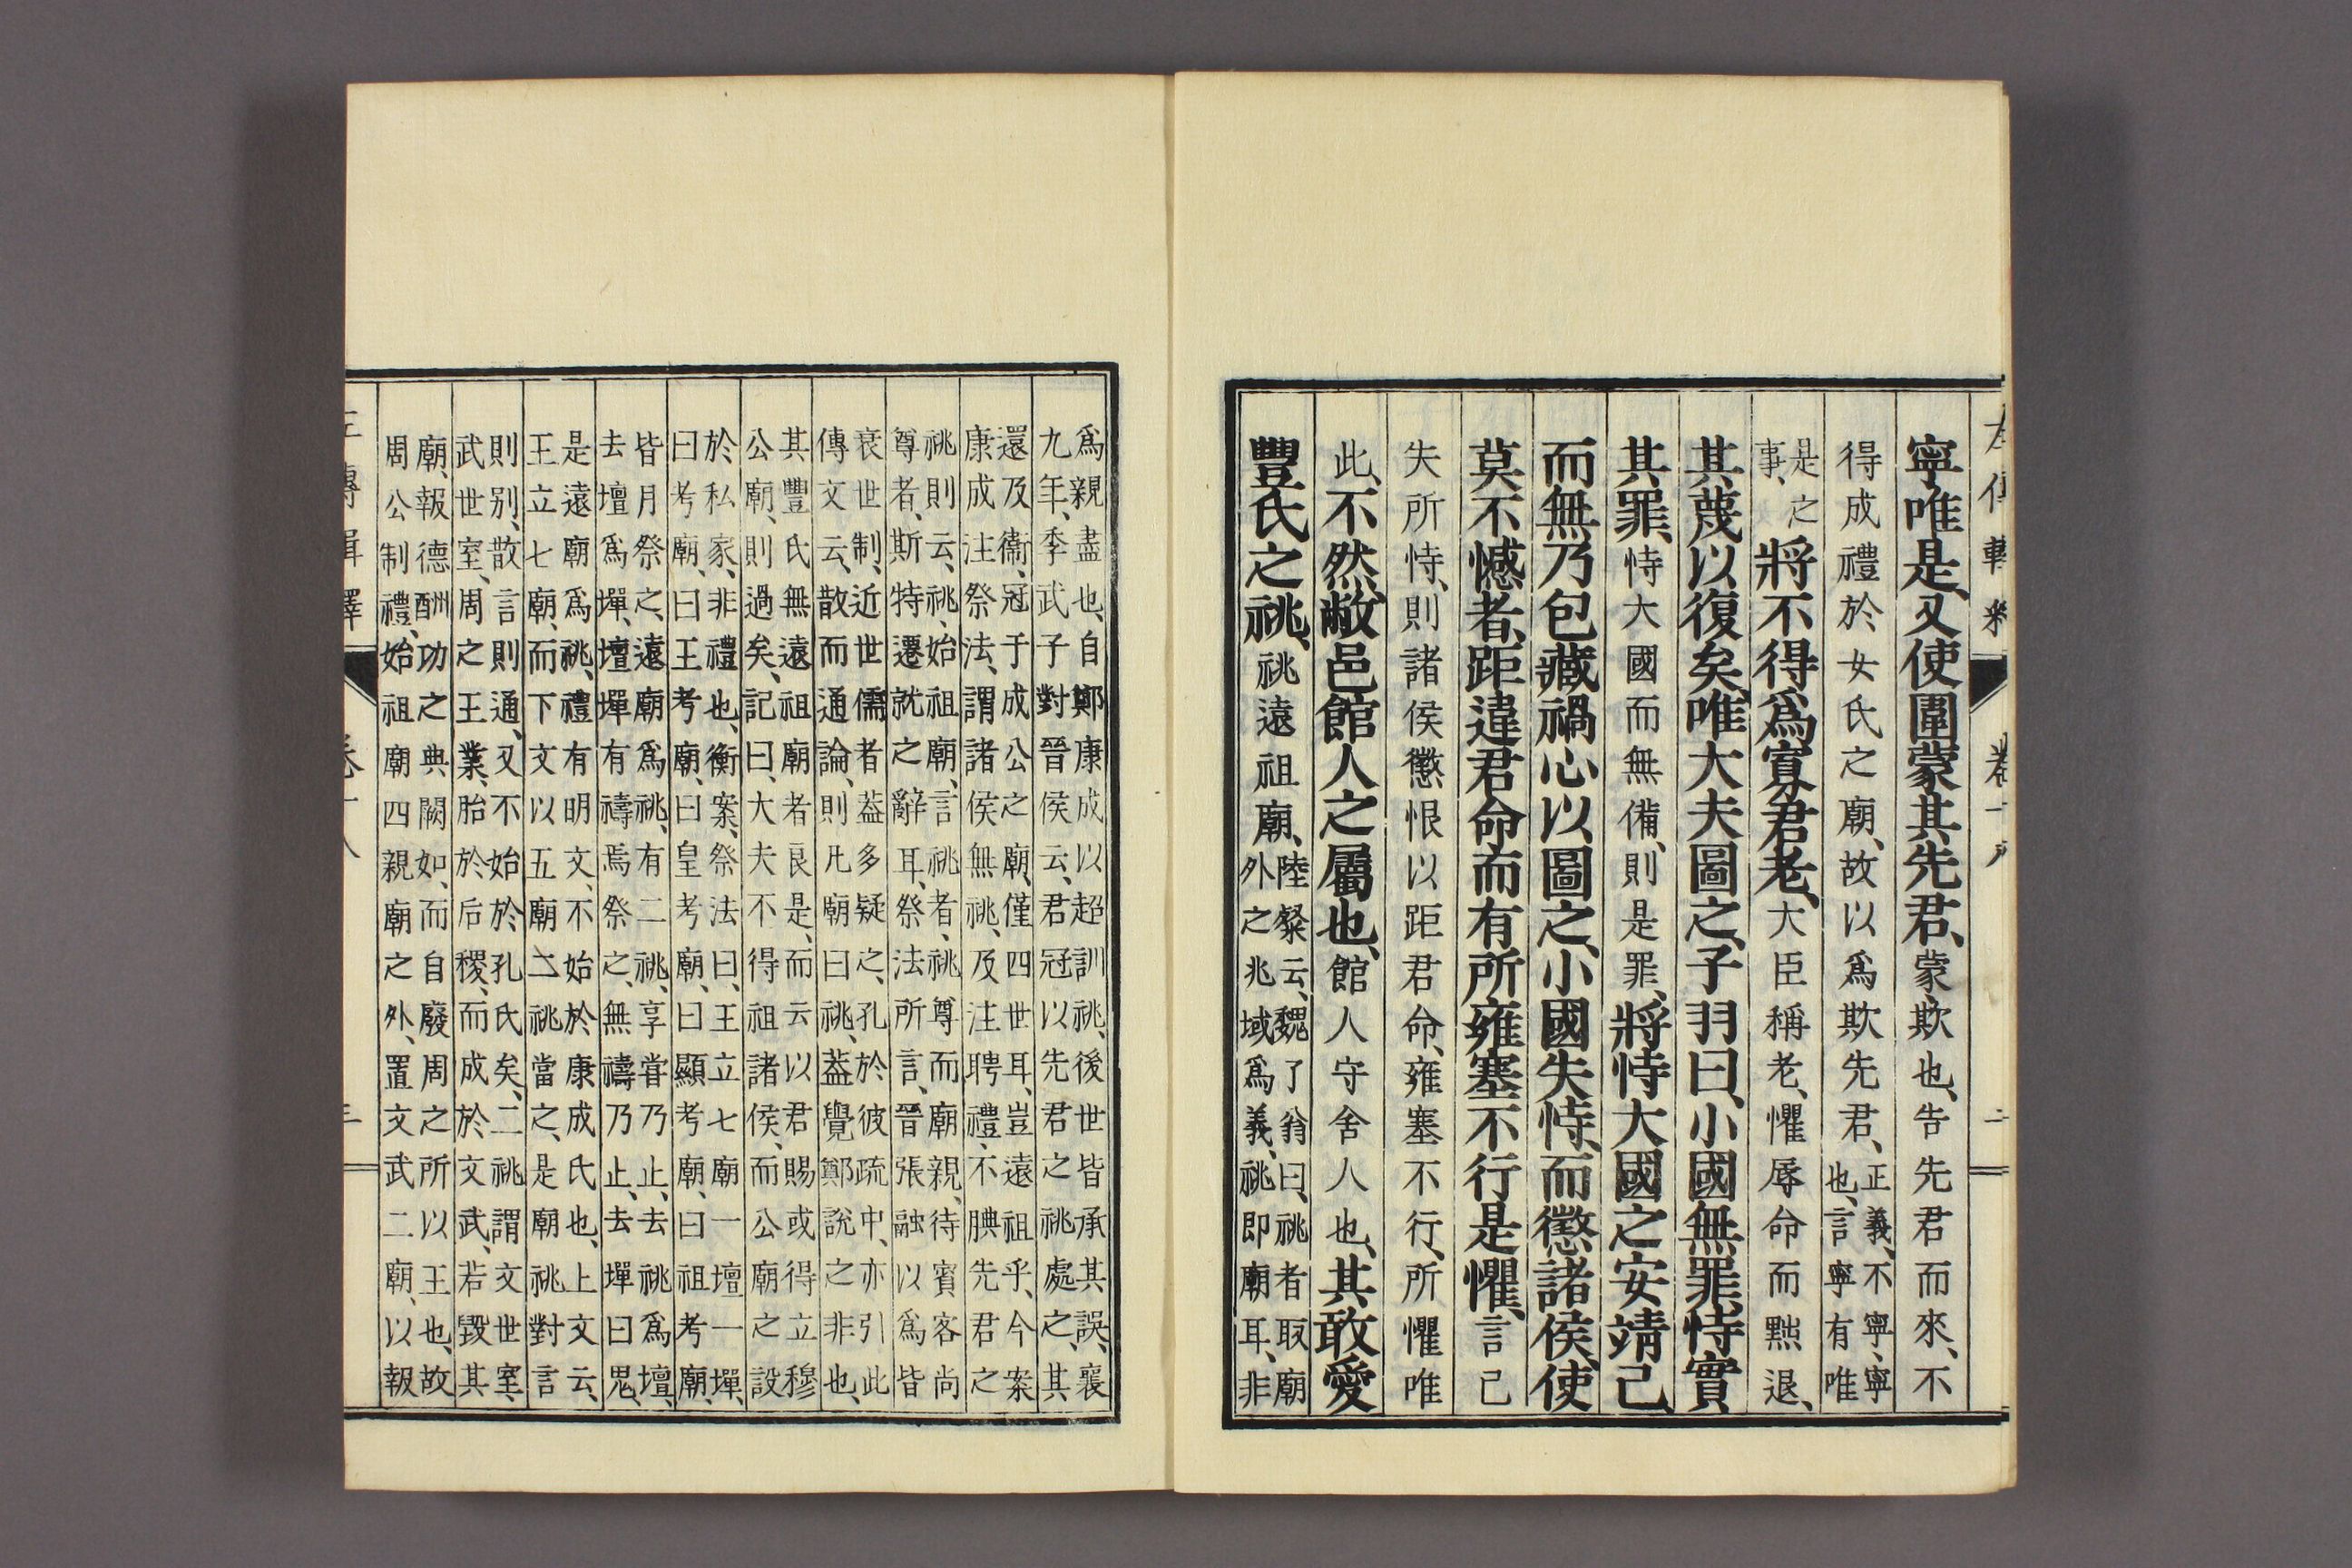 左傳輯釋 卷十八 二
寧唯是、又使圍蒙其先君、蒙、欺也、告先君而來、不
得成禮於女氏之廟、故以爲欺先君、正義、不寧、寧
也、言寧有唯
是之
事、將不得爲寡君老、大臣稱老、懼辱命而黜退、
其蔑以復矣、唯大夫圖之、子羽曰、小國無罪、恃實
其罪、恃大國而無備、則是罪、將恃大國之安靖己、
而無乃包藏禍心以圖之、小國失恃、而懲諸侯、使
莫不憾者、距違君命而有所雍塞不行是懼、言己
失所恃、則諸侯懲恨以距君命、雍塞不行、所懼唯
此、不然、敝邑館人之屬也、館人守舍人也、其敢愛
豐氏之祧、祧遠祖廟、陸粲云、魏了翁曰、祧者取廟
外之兆域爲義、祧即廟耳、非
爲親盡也、自鄭康成以超訓祧、後世皆承其誤、襄
九年、季武子對晉侯云、君冠以先君之祧處之、其
還及衞、冠于成公之廟、僅四世耳、豈遠祖乎、今案
康成注祭法、謂諸侯無祧、及注聘禮、不腆先君之
祧則云、祧、始祖廟、言祧者、祧尊而廟親、待賓客尚
尊者、斯特遷就之辭耳、祭法所言、晉張融以爲皆
衰世制、近世儒者葢多疑之、孔於彼疏中、亦引此
傳文云、散而通論、則凡廟曰祧、葢覺鄭說之非也、
其豐氏無遠祖廟者良是、而云以君賜或得立穆
公廟、則過矣、記曰、大夫不得祖諸侯、而公廟之設
於私家、非禮也、衡案、祭法曰、王立七廟一壇一墠、
曰考廟、曰王考廟、曰皇考廟、曰顯考廟、曰祖考廟、
皆月祭之、遠廟爲祧、有二祧、享甞乃止、去祧爲壇、
去壇爲墠、壇墠有禱焉祭之、無禱乃止、去墠曰鬼、
是遠廟爲祧、禮有明文、不始於康成氏也、上文云、
王立七廟、而下文以五廟二祧當之、是廟祧對言
則别、散言則通、又不始於孔氏矣、二祧謂文世室、
武世室、周之王業、胎於后稷、而成於文武、若毀其
廟、報德酬功之典闕如、而自廢周之所以王也、故
周公制禮、始祖廟四親廟之外、置文武二廟、以報
左傳輯釋 卷十八 三